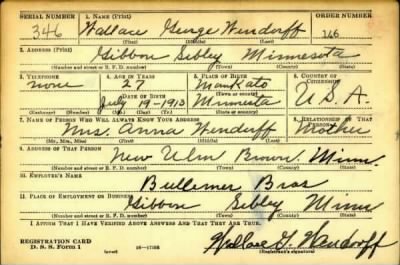 SERIAL NUMBER 1. NAME (Print) ORDER NUMBER
346 Wallace George Wendorff 146
(First) (Middle) (Last)
2. ADDRESS (Print)
Gibbon Sibley Minnesota
(Number and street or R. F. D. number) (Town) (County) (State)
3. TELEPHONE 4. AGE IN YEARS 5. PLACE OF BIRTH 6. COUNTRY OF CITIZENSHIP
none 27 Mankato
DATE OF BIRTH (Town or county)
July 19-1913 Minnesota U.S.A.
(Exchange) (Number) (Mo.) (Day) (Yr.) (State or country)
7. NAME OF PERSON WHO WILL ALWAYS KNOW YOUR ADDRESS 8. RELATIONSHIP OF THAT PERSON
Mrs. Anna Wendorff Mother
(Mr., Mrs., Miss) (First) (Middle) (Last)
9. ADDRESS OF THAT PERSON
New Ulm Brown Minn.
(Number and street or R. F. D. number) (Town) (County) (State)
10. EMPLOYER'S NAME
Bullemer Bros
11. PLACE OF EMPLOYMENT OR BUSINESS
Gibbon Sibley Minn
(Number and street or R. F. D. number) (Town) (County) (State)
I AFFIRM THAT I HAVE VERIFIED ABOVE ANSWERS AND THAT THEY ARE TRUE.
REGISTRATION CARD
D. S. S. FORM 1 (over) Wallace G. Wendorff
(Registrant's signature)